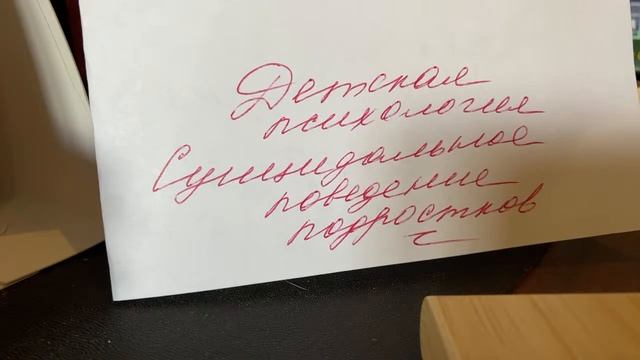 Детская
психология
Суицидальное
поведение
подростков